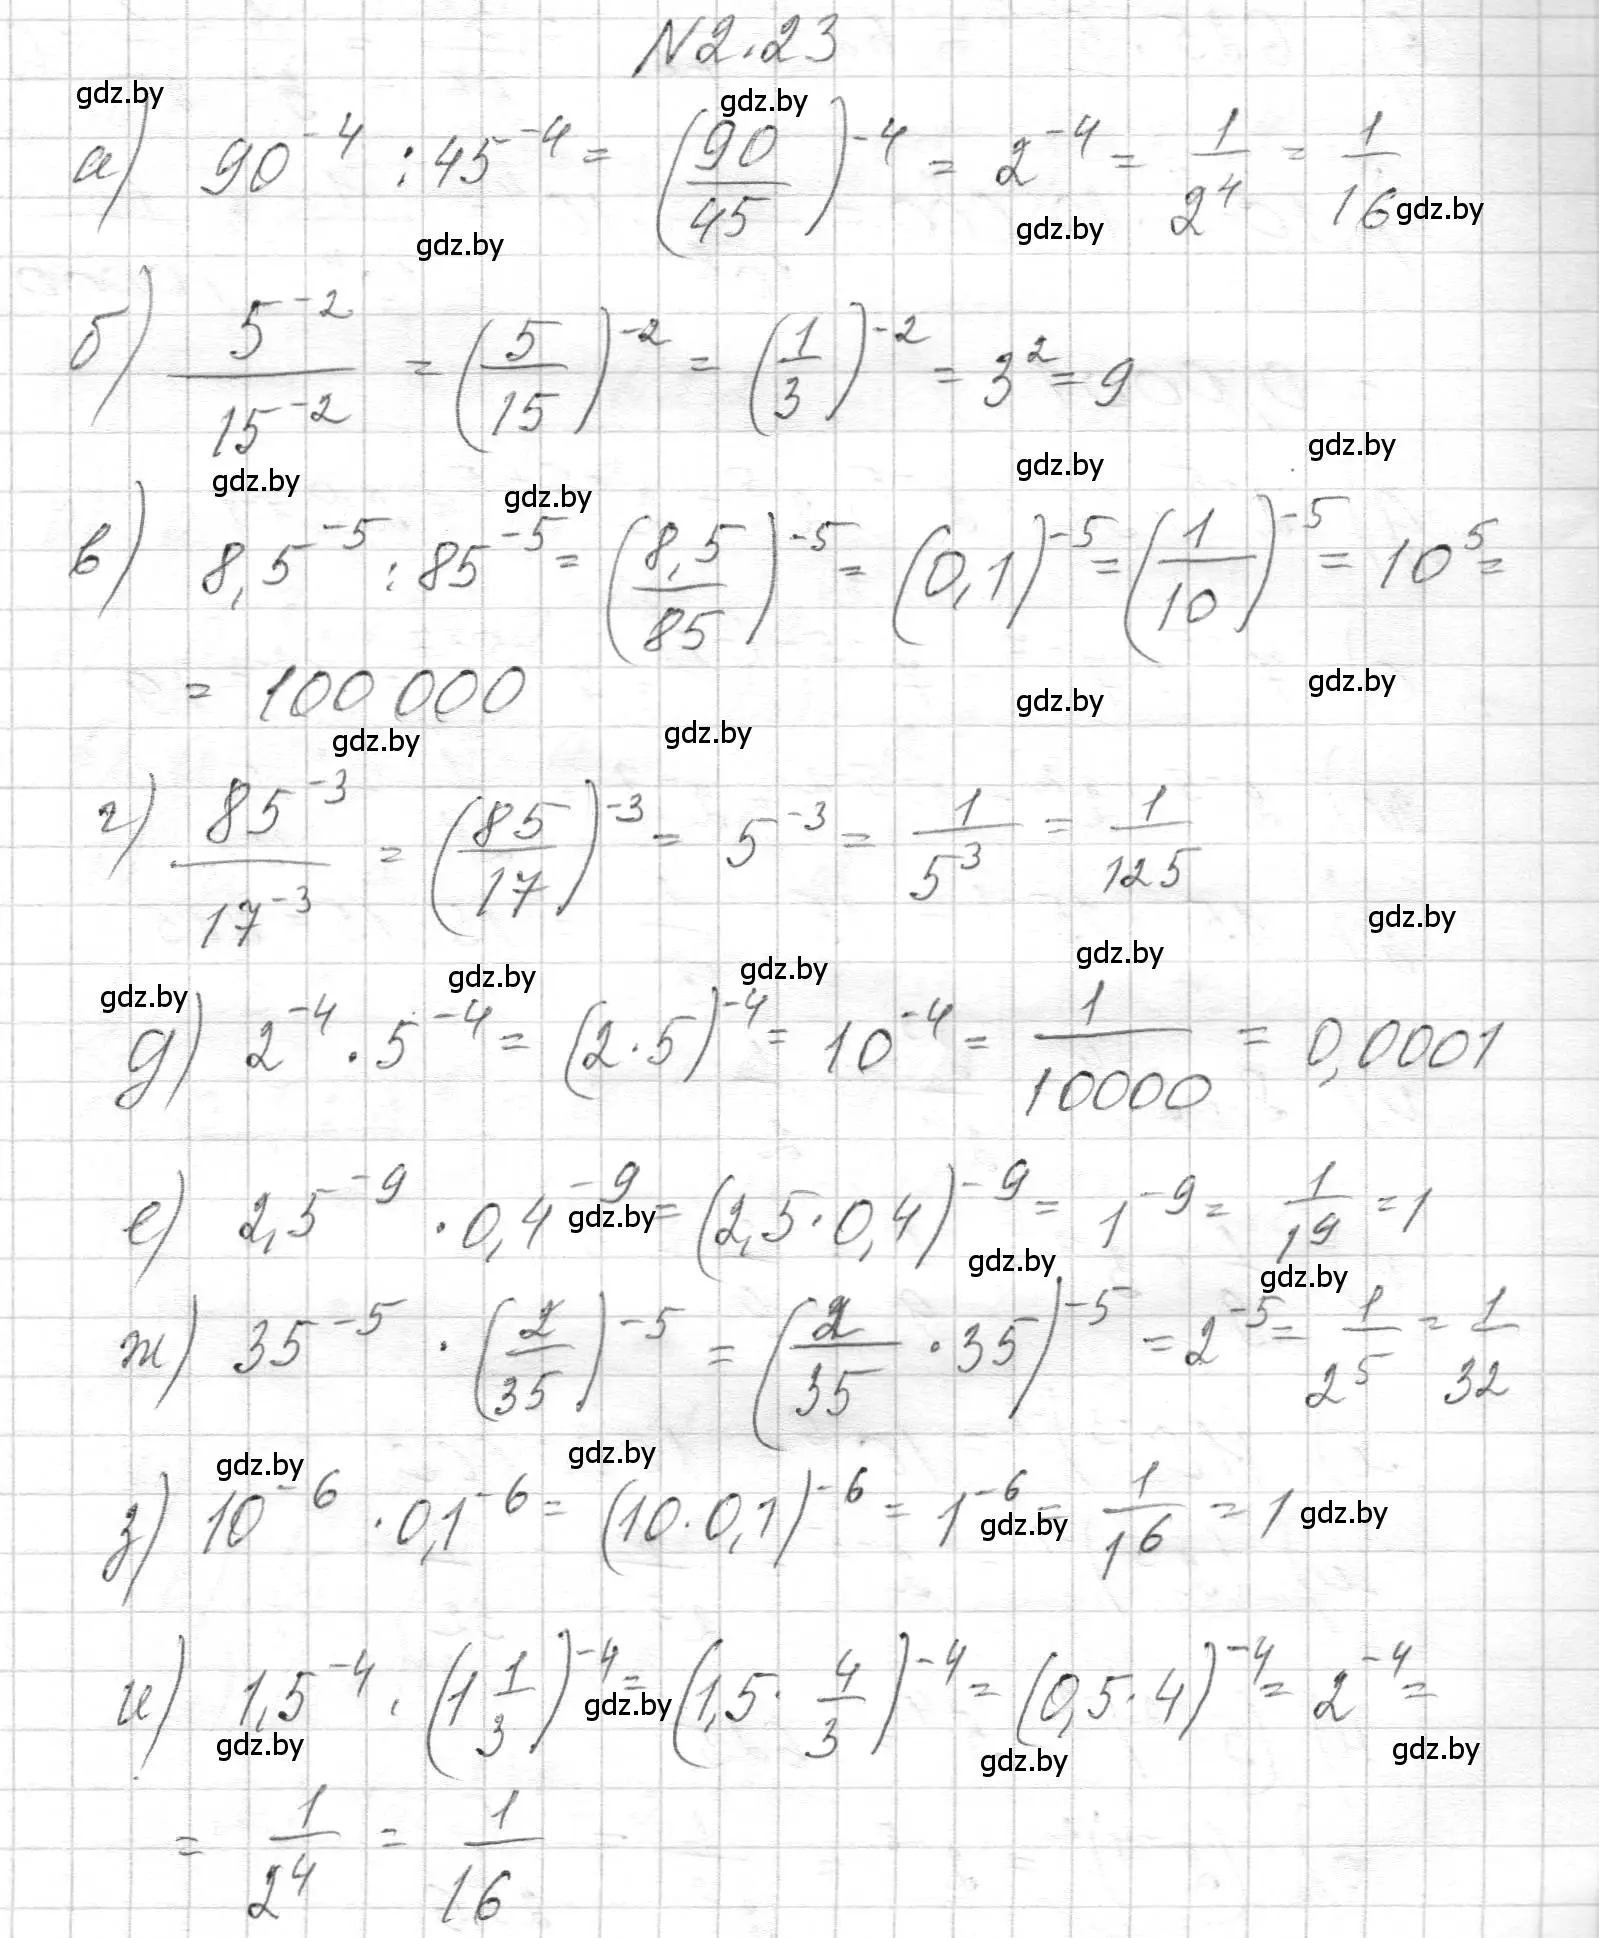 N 2.23
gdz.by gdz.by
а) 90^{-4} : 45^{-4} = (90/45)^{-4} = 2^{-4} = 1/2^4 = 1/16 gdz.by
gdz.by gdz.by
б) 5^{-2}/15^{-2} = (5/15)^{-2} = (1/3)^{-2} = 3^2 = 9
gdz.by gdz.by gdz.by gdz.by
в) 8,5^{-5} : 85^{-5} = (8,5/85)^{-5} = (0,1)^{-5} = (1/10)^{-5} = 10^5 =
= 100 000 gdz.by gdz.by
gdz.by gdz.by
г) 85^{-3}/17^{-3} = (85/17)^{-3} = 5^{-3} = 1/5^3 = 1/125
gdz.by
gdz.by gdz.by gdz.by gdz.by
д) 2^{-4} · 5^{-4} = (2·5)^{-4} = 10^{-4} = 1/10000 = 0,0001
е) 2,5^{-9} · 0,4^{-9} = (2,5·0,4)^{-9} = 1^{-9} = 1/1^9 = 1
gdz.by gdz.by gdz.by
ж) 35^{-5} · (2/35)^{-5} = (2/35 · 35)^{-5} = 2^{-5} = 1/2^5 = 1/32
gdz.by gdz.by
з) 10^{-6} · 0,1^{-6} = (10·0,1)^{-6} = 1^{-6} = 1/1^6 = 1 gdz.by
gdz.by
и) 1,5^{-4} · (1 1/3)^{-4} = (1,5 · 4/3)^{-4} = (0,5·4)^{-4} = 2^{-4} =
gdz.by gdz.by gdz.by gdz.by
= 1/2^4 = 1/16